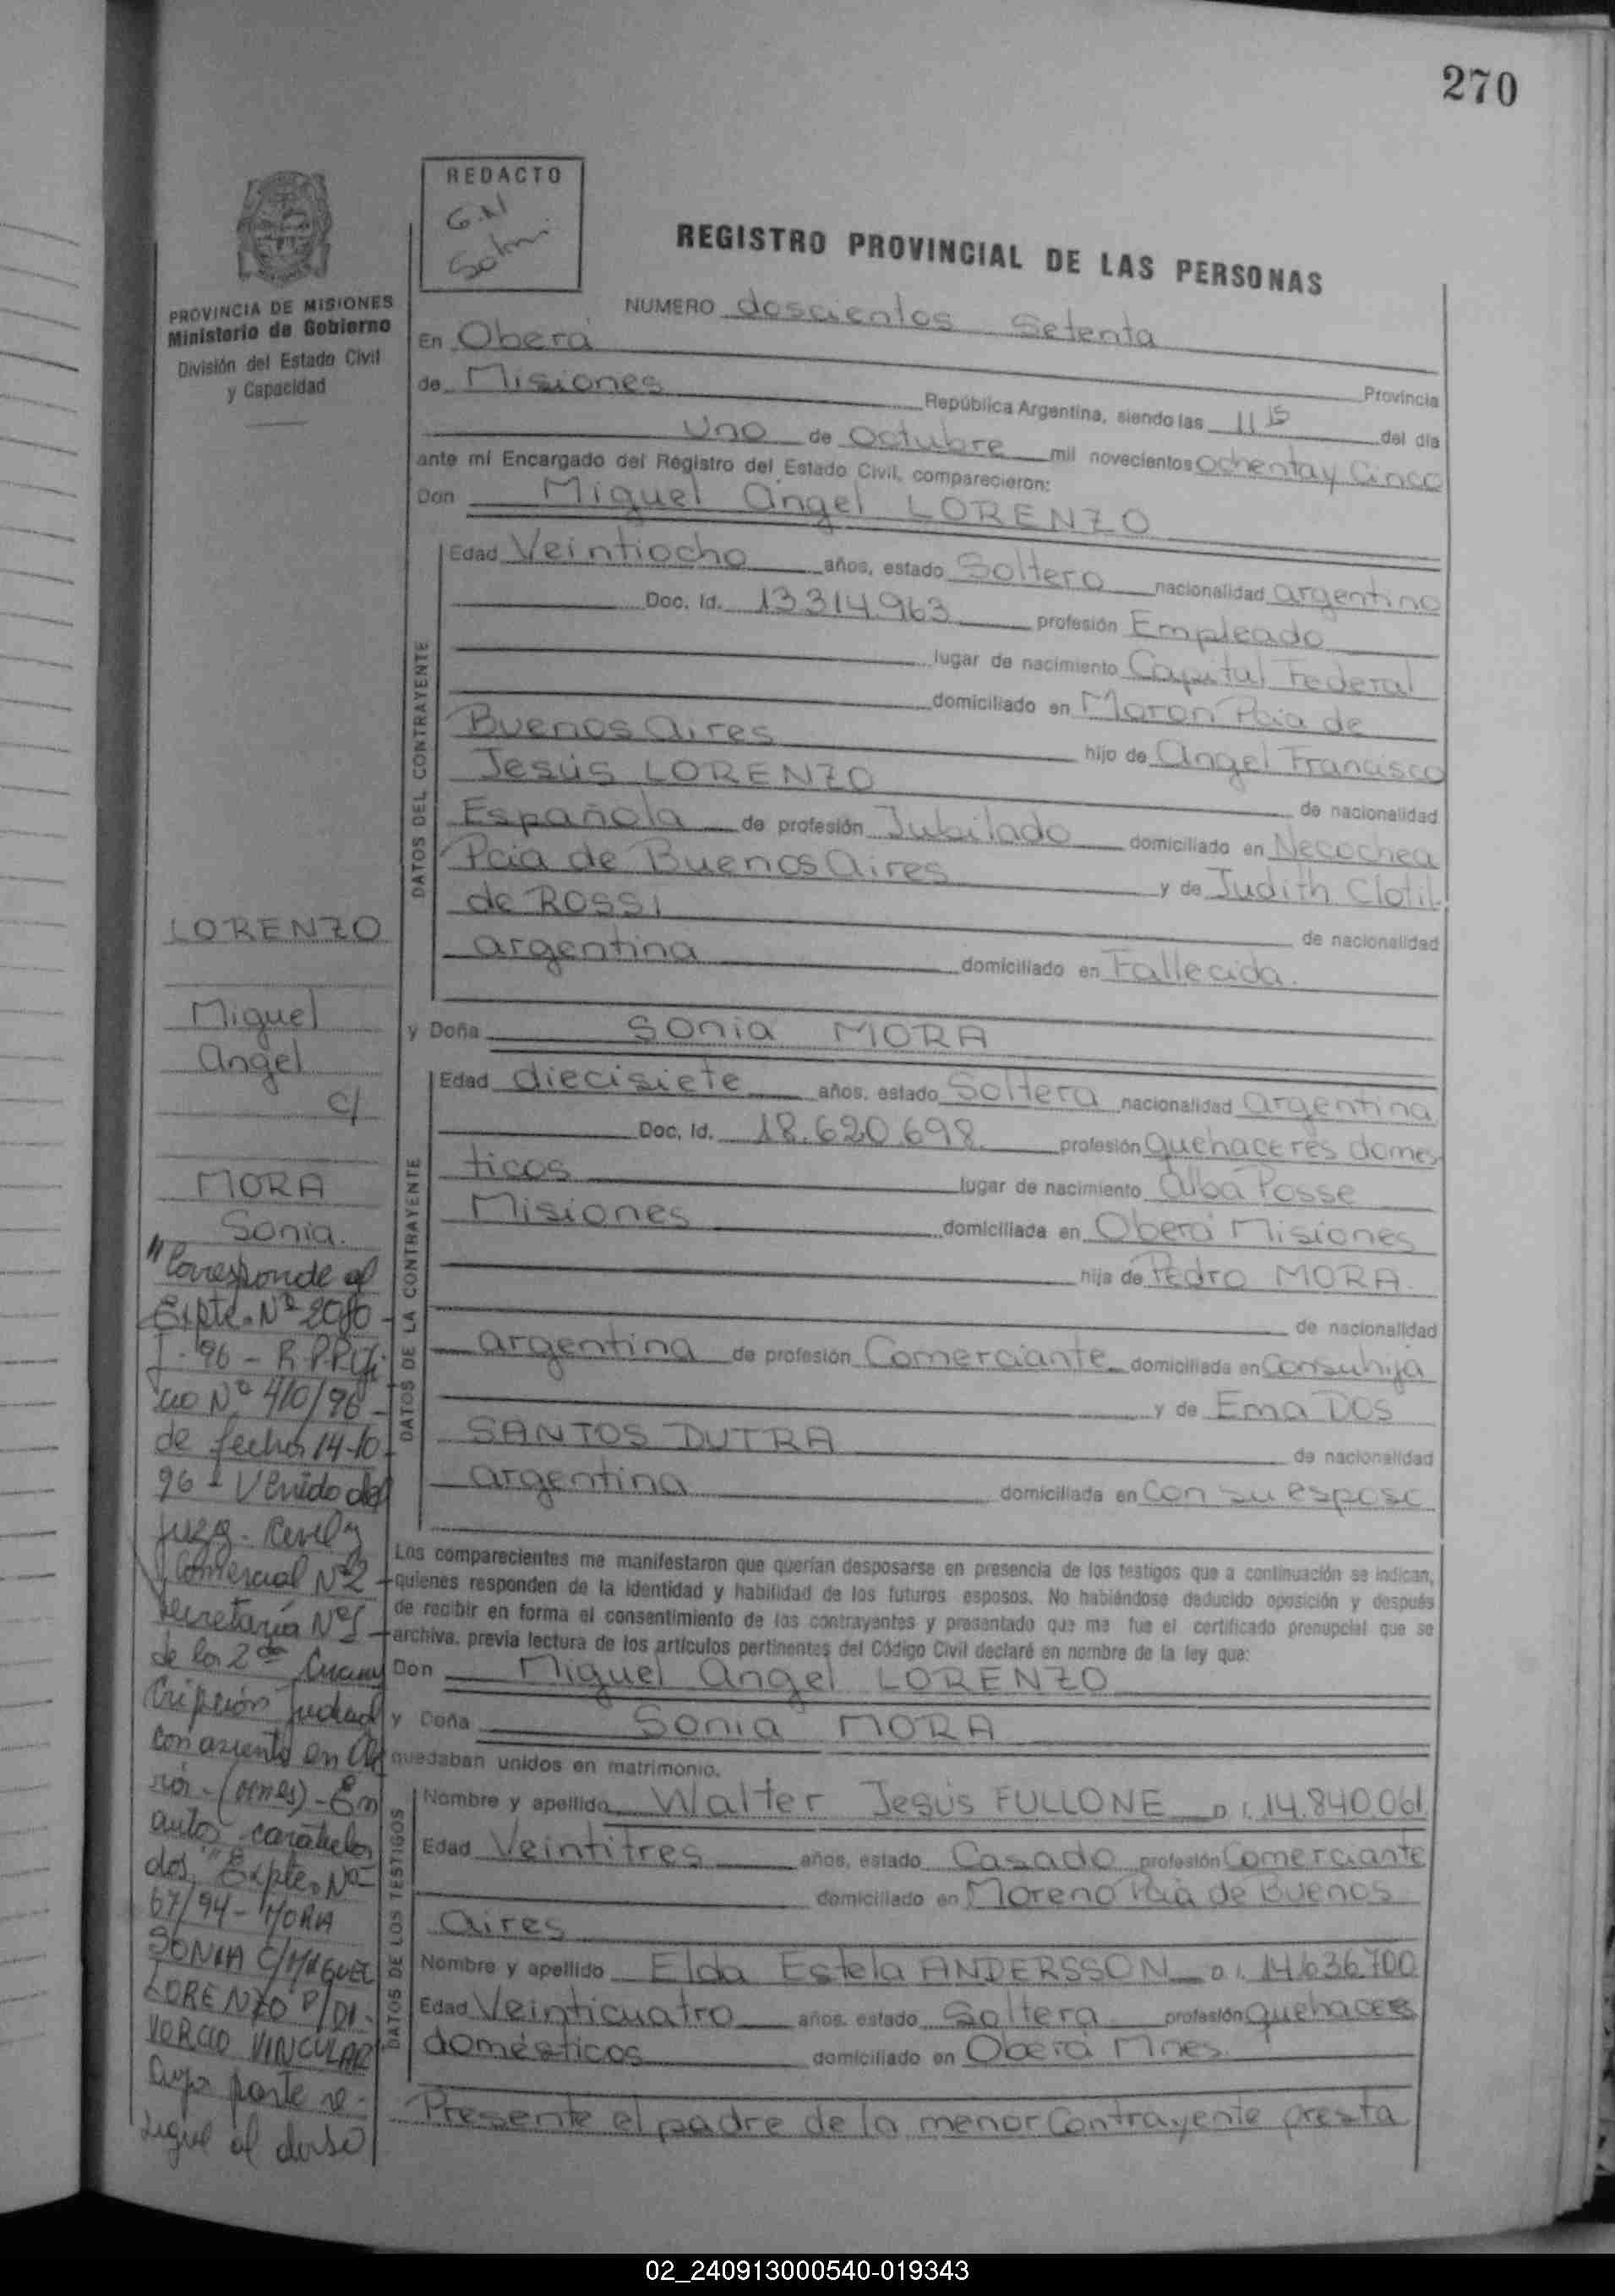 270
REDACTO
G.N
REGISTRO PROVINCIAL DE LAS PERSONAS
PROVINCIA DE MISIONES
Ministerio de Gobierno
División del Estado Civil
y Capacidad
NUMERO doscientos Setenta
En Oberá
Provincia
de Misiones República Argentina, siendo las 11 15 del día
Uno de Octubre mil novecientos Ochenta y Cinco
ante mí Encargado del Registro del Estado Civil, comparecieron:
Don Miguel Angel LORENZO
DATOS DEL CONTRAYENTE
Edad Veintiocho años, estado Soltero nacionalidad argentino
Doc. Id. 13314.963 profesión Empleado
lugar de nacimiento Capital Federal
domiciliado en Moron Pcia de
Buenos Aires hijo de Angel Francisco
Jesús LORENZO de nacionalidad
Española de profesión Jubilado domiciliado en Necochea
Pcia de Buenos Aires y de Judith Clotil
de ROSSI de nacionalidad
argentina domiciliado en Fallecida.
y Doña Sonia MORA
DATOS DE LA CONTRAYENTE
Edad diecisiete años, estado Soltera nacionalidad argentina
Doc. Id. 18.620.698. profesión quehaceres domes
ticos lugar de nacimiento Alba Posse
Misiones domiciliada en Oberá Misiones
hija de Pedro MORA.
de nacionalidad
argentina de profesión Comerciante domiciliada en Con su hija
y de Ema DOS
SANTOS DUTRA de nacionalidad
argentina domiciliada en Con su esposo
Los comparecientes me manifestaron que querían desposarse en presencia de los testigos que a continuación se indican,
quienes responden de la identidad y habilidad de los futuros esposos. No habiéndose deducido oposición y después
de recibir en forma el consentimiento de los contrayentes y presentado que me fue el certificado prenupcial que se
archiva, previa lectura de los artículos pertinentes del Código Civil declaré en nombre de la ley que:
Don Miguel Angel LORENZO
y Doña Sonia MORA
quedaban unidos en matrimonio.
DATOS DE LOS TESTIGOS
Nombre y apellido Walter Jesús FULLONE D.I. 14.840.061
Edad Veintitres años, estado Casado profesión Comerciante
domiciliado en Moreno Pcia de Buenos
Aires
Nombre y apellido Elda Estela ANDERSSON D.I. 14.636.700
Edad Veinticuatro años, estado Soltera profesión quehaceres
domésticos domiciliado en Oberá Mnes.
Presente el padre de la menor Contrayente presta
LORENZO
Miguel
Angel
c/
MORA
Sonia.
"Corresponde al
Expte. Nº 2080
I - 96 - R.P.P. Ofi
cio Nº 410/96
de fecha 14-10
96 - Venido del
Juzg. Civil y
Comercial Nº 2
Secretaría Nº 1
de la 2da Circuns
cripción Judicial
con asiento en Obe
rá - (Mnes) - En
autos caratula
dos "Expte. Nº
67/94 - MORA
SONIA C/ MIGUEL
LORENZO P/ DI-
VORCIO VINCULAR
cuya parte re-
sigue al dorso
02_240913000540-019343